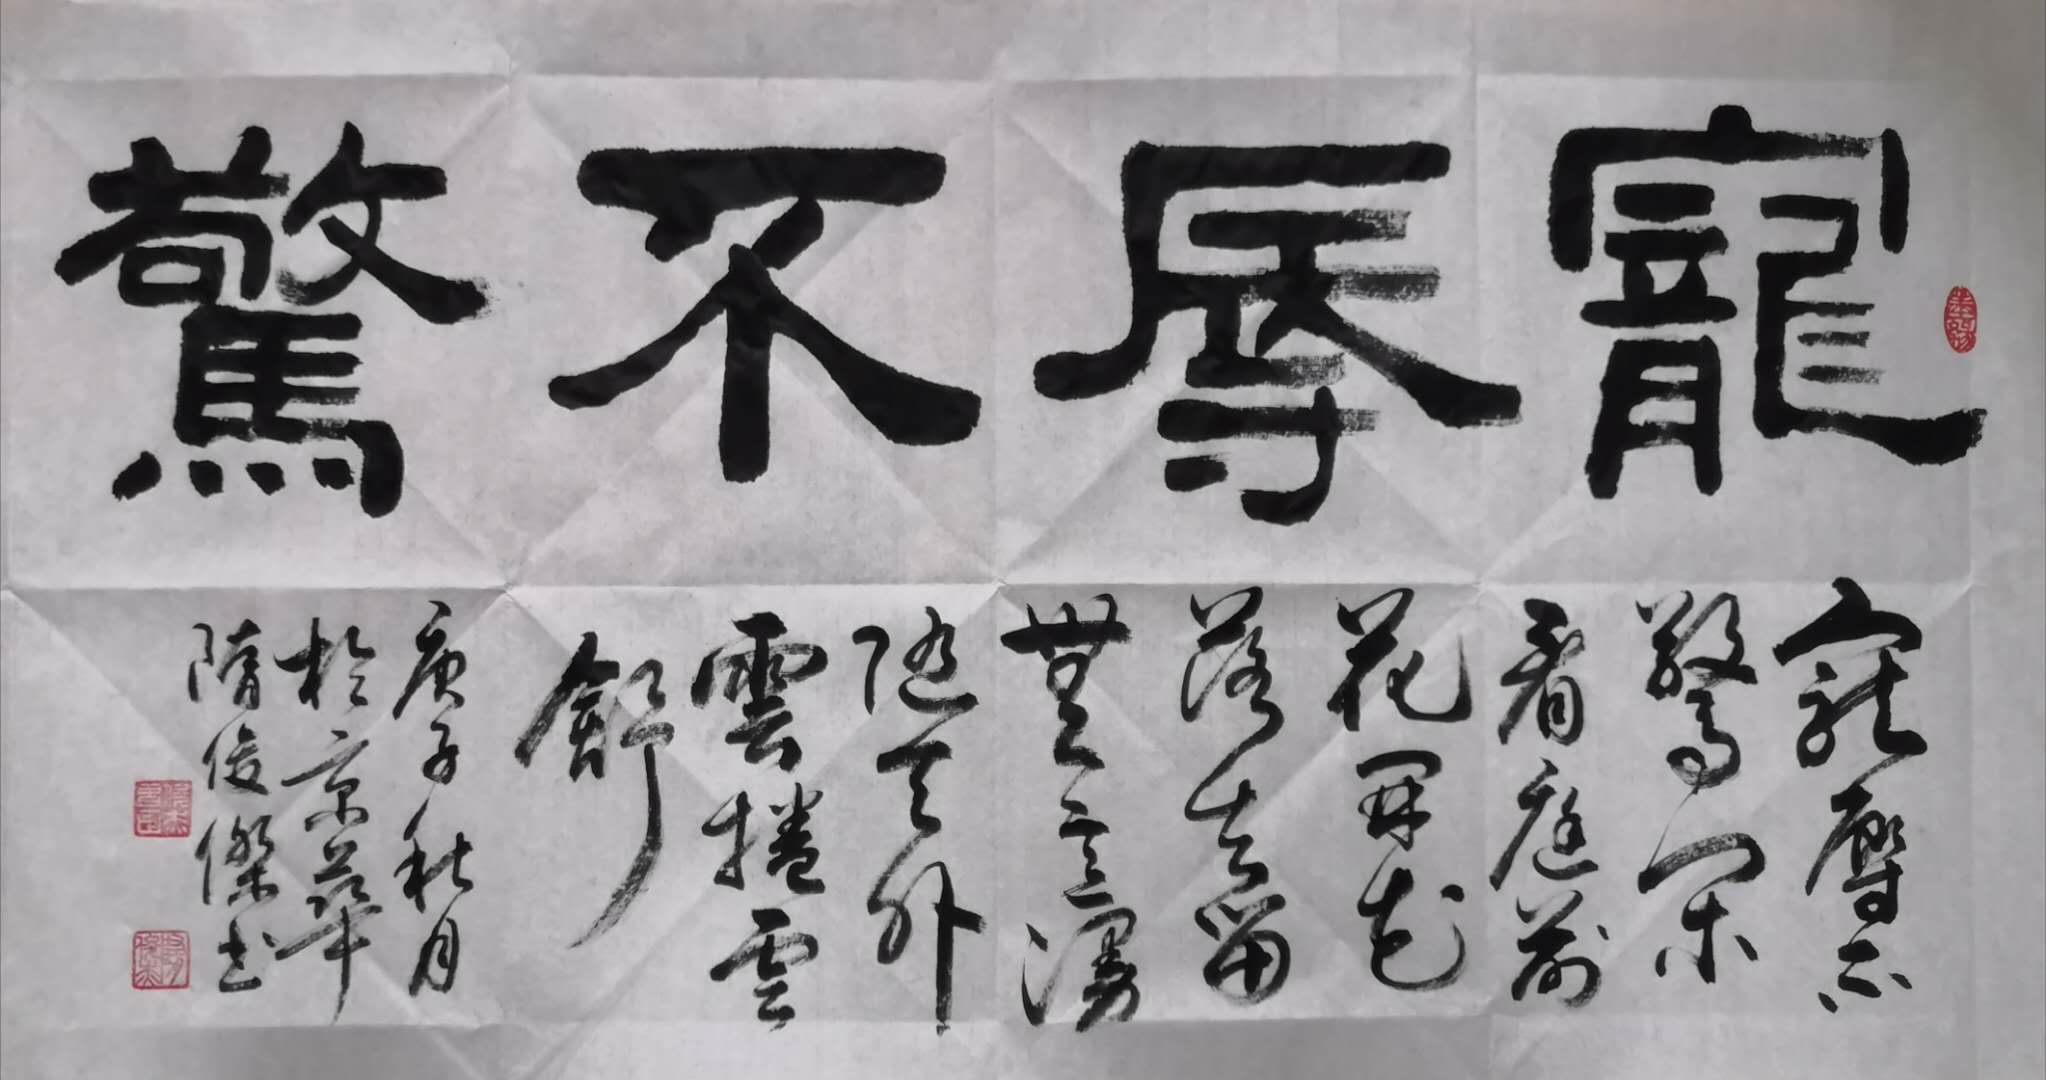 寵辱不驚
寵辱不
驚閑
看庭前
花開花
落去留
無意漫
随天外
雲捲雲
舒
庚子秋月
於京華
隋俊傑书